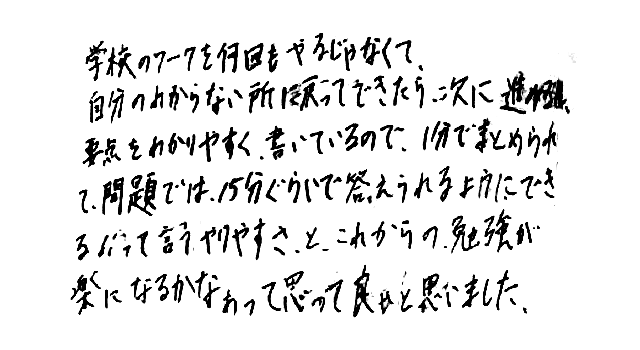 学校のワークを何回もやるじゃなくて、
自分のわからない所に戻ってできたら、次に進
要点をわかりやすく、書いているので、1分でまとめられ
て、問題では、15分ぐらいで答えられるようにでき
るって言うやりやすさ、と、これからの、勉強が
楽になるかなぁって思って良いと思いました、